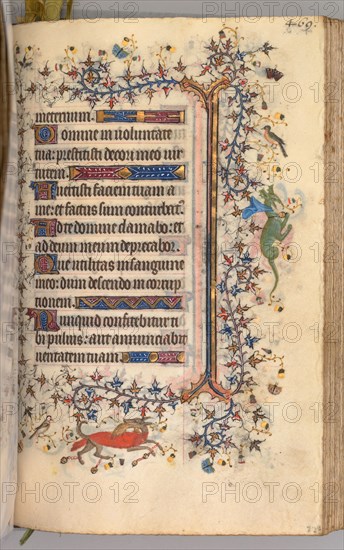 469.
meternum.
Domine in voluntate
tua: prestitisti decori meo vir
tutem.
Auertisti faciem tuam a
me: et factus sum conturbat.
Ad te domine clamabo: et
ad deum meum deprecabor.
Que utilitas in sanguine
meo: dum descendo in corrup
tionem.
Nunquid confitebitur ti
bi puluis: aut annunciabit
ueritatem tuam.
PHOTO 12